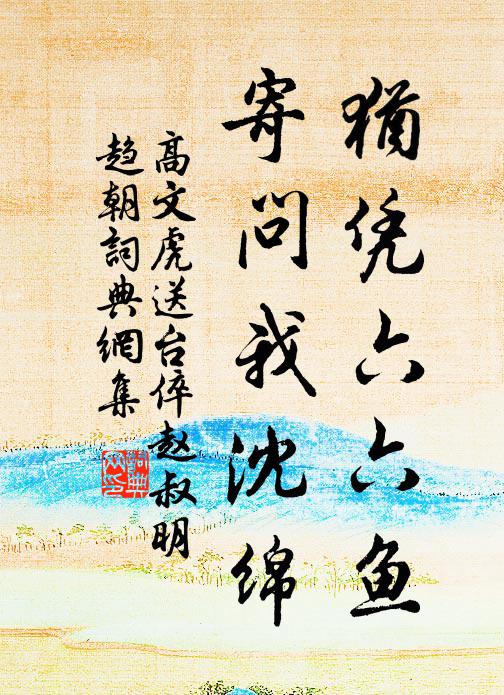 猶凭六六鱼
寄问我沈绵
高文虎送台倅赵叔明
趋朝詞典網集